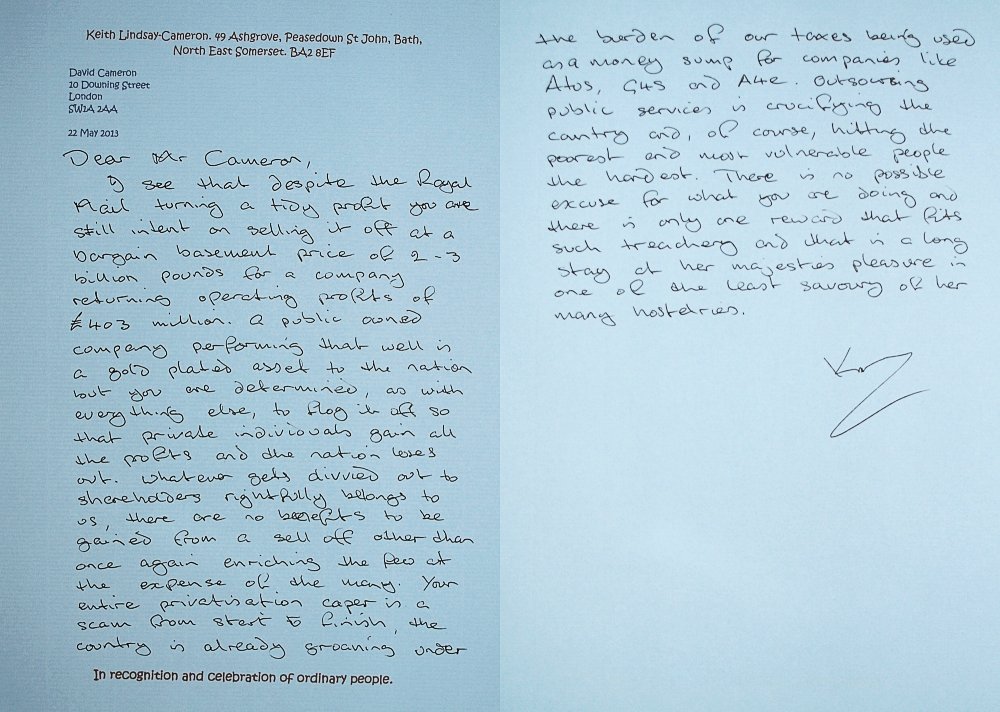 Keith Lindsay-Cameron. 49 Ashgrove, Peasedown St John, Bath,
North East Somerset. BA2 8EF
David Cameron
10 Downing Street
London
SW1A 2AA
22 May 2013
Dear Mr Cameron,
I see that despite the Royal
Mail turning a tidy profit you are
still intent on selling it off at a
bargain basement price of 2-3
billion pounds for a company
returning operating profits of
£403 million. A public owned
company performing that well is
a gold plated asset to the nation
but you are determined, as with
everything else, to flog it off so
that private individuals gain all
the profits and the nation loses
out. Whatever gets divvied out to
shareholders rightfully belongs to
us, there are no benefits to be
gained from a sell off other than
once again enriching the few at
the expense of the many. Your
entire privatisation caper is a
scam from start to finish, the
country is already groaning under
In recognition and celebration of ordinary people.
the burden of our taxes being used
as a money sump for companies like
Atos, G4S and A4e. Outsourcing
public services is crucifying the
country and, of course, hitting the
poorest and most vulnerable people
the hardest. There is no possible
excuse for what you are doing and
there is only one reward that fits
such treachery and that is a long
stay at her majesties pleasure in
one of the least savoury of her
many hostelries.